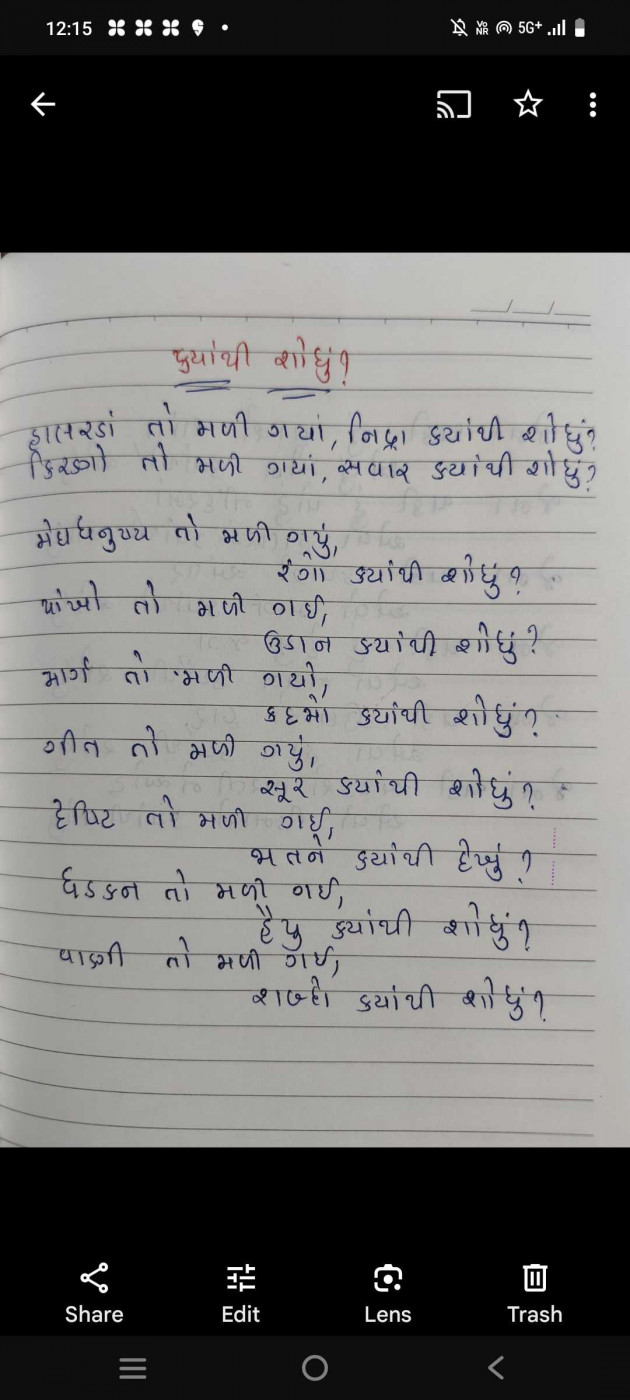 12:15
VO NR 5G+
ક્યાંથી શોધું?
હાલરડાં તો મળી ગયાં, નિદ્રા ક્યાંથી શોધું?
કિરણો તો મળી ગયાં, સવાર ક્યાંથી શોધું?
મેઘધનુષ્ય તો મળી ગયું,
રંગો ક્યાંથી શોધું?
પાંખો તો મળી ગઈ,
ઉડાન ક્યાંથી શોધું?
માર્ગ તો મળી ગયો,
કદમો ક્યાંથી શોધું?
ગીત તો મળી ગયું,
સૂર ક્યાંથી શોધું?
દ્રષ્ટિ તો મળી ગઈ,
ક્યાંથી દેખું?
ધડકન તો મળી ગઈ,
હૈયુ ક્યાંથી શોધું?
વાણી તો મળી ગઈ,
શબ્દો ક્યાંથી શોધું?
Share Edit Lens Trash